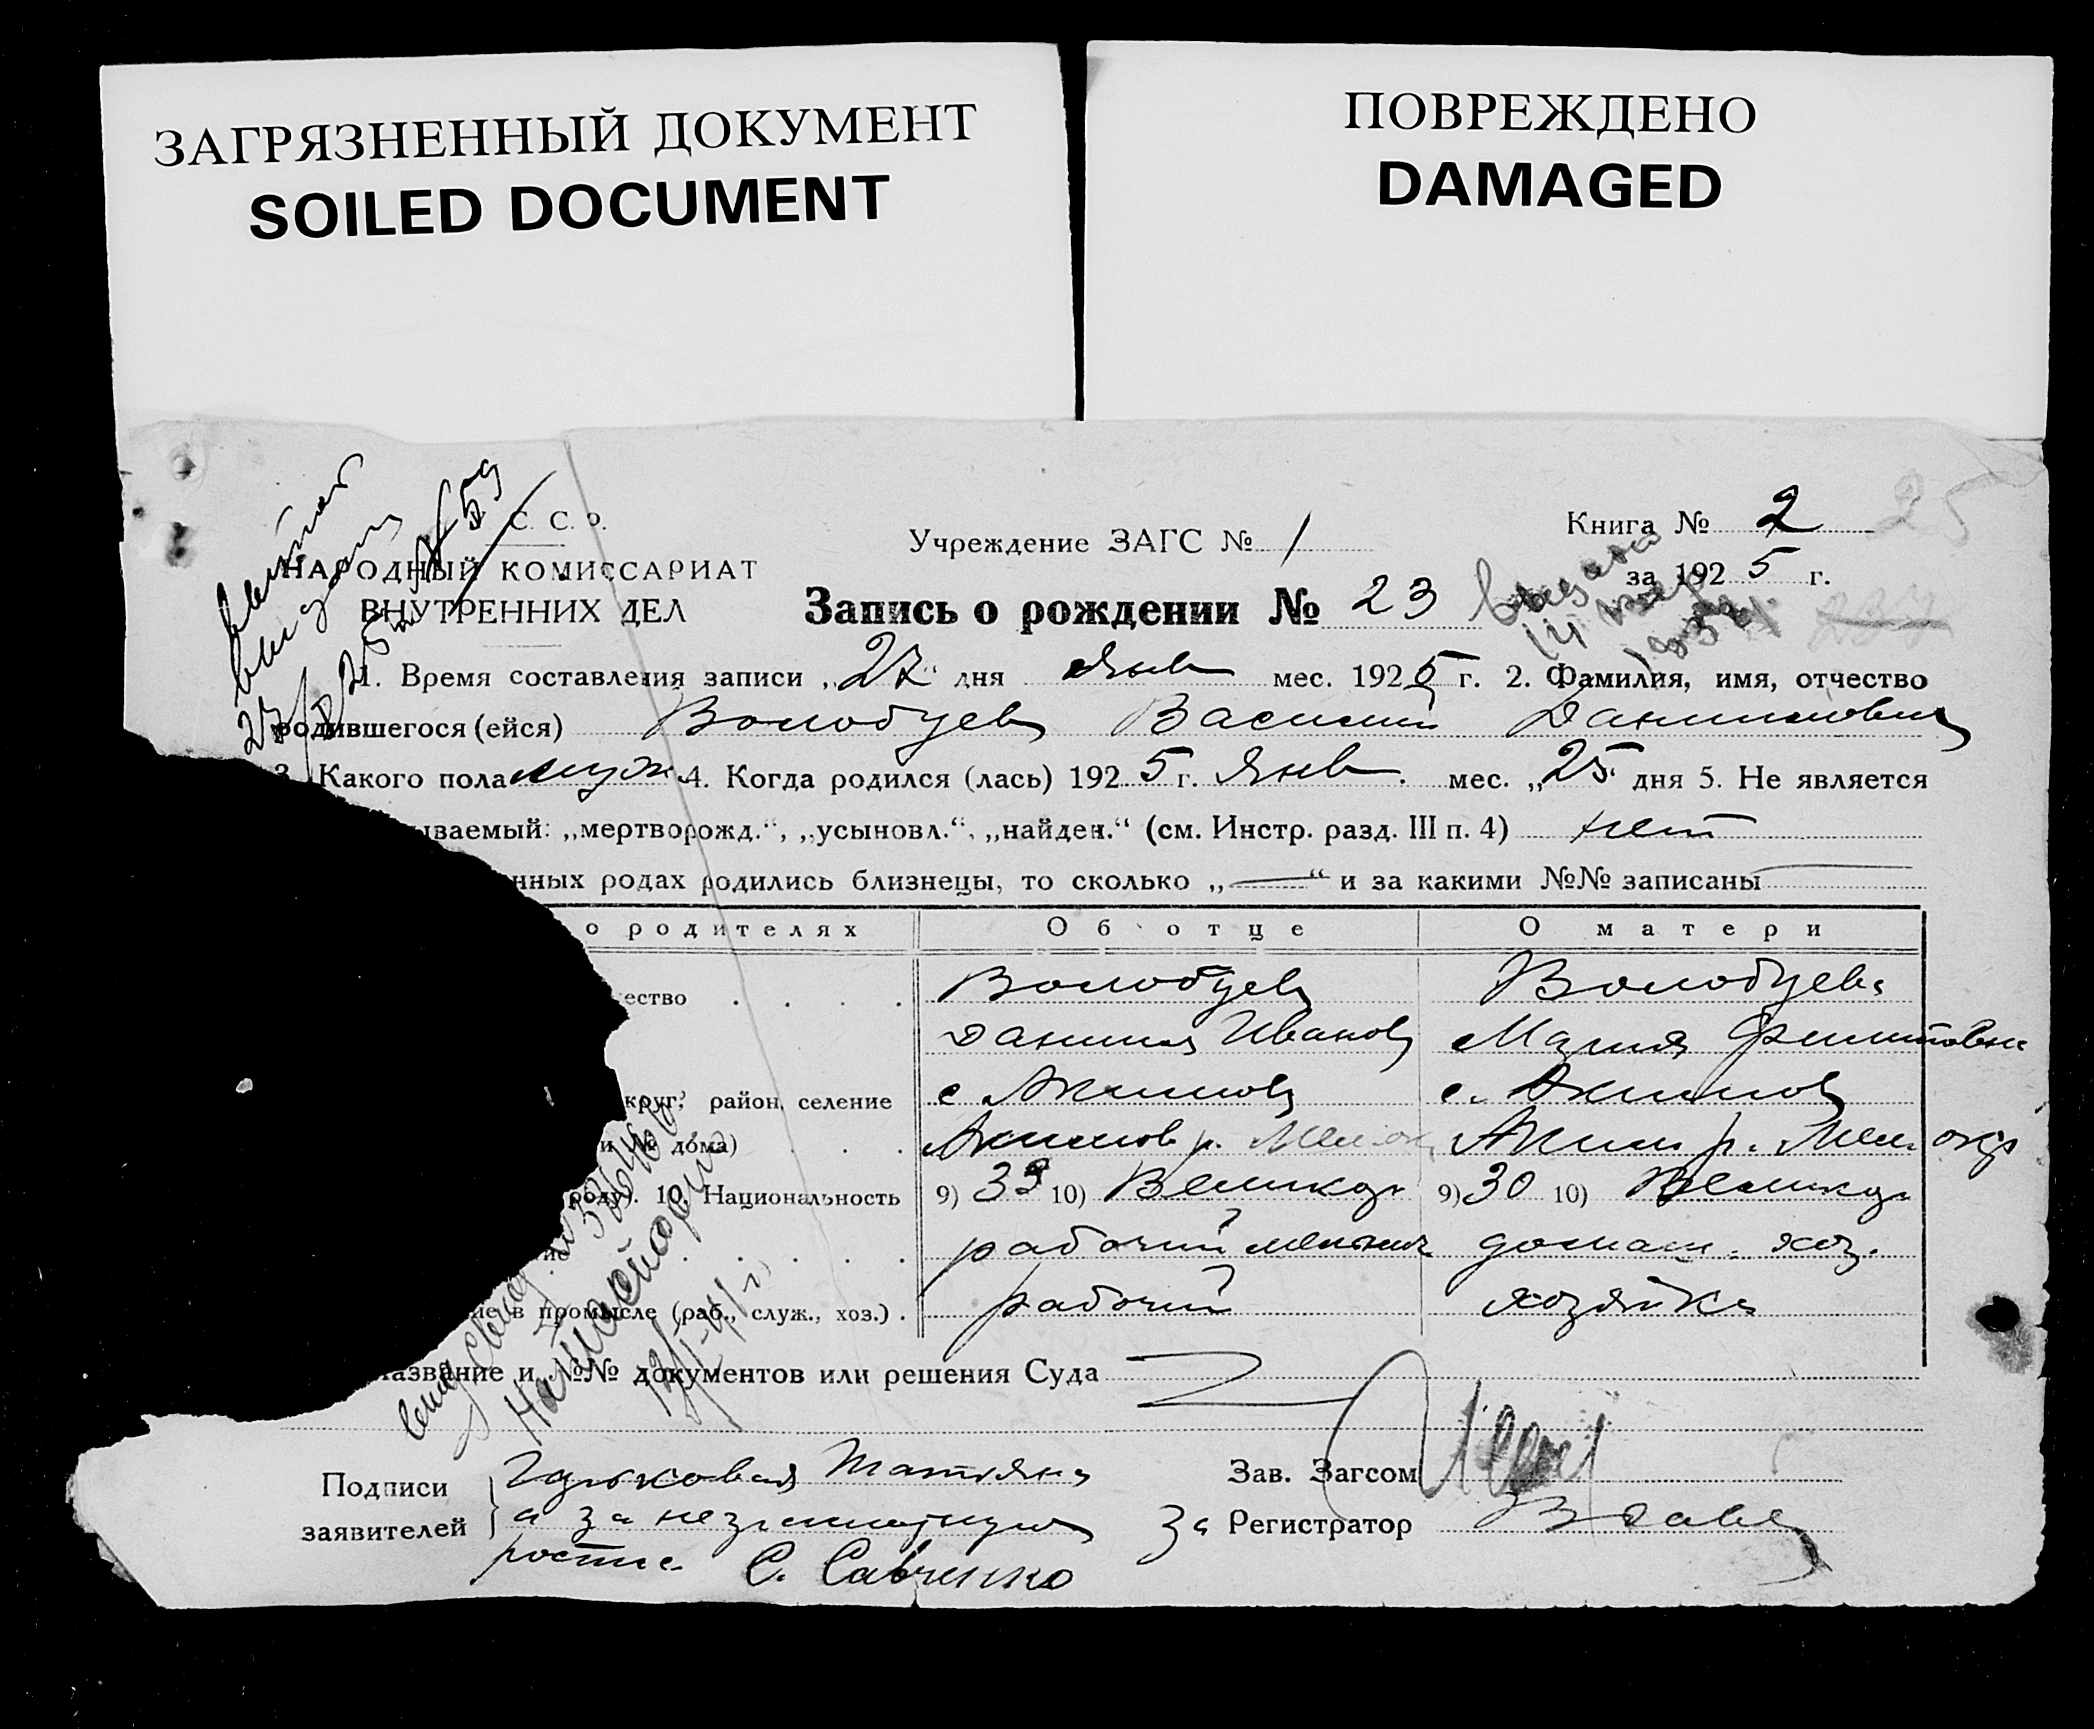 ЗАГРЯЗНЕННЫЙ ДОКУМЕНТ
SOILED DOCUMENT
ПОВРЕЖДЕНО
DAMAGED
С. С. Р.
НАРОДНЫЙ КОМИССАРИАТ
ВНУТРЕННИХ ДЕЛ
Учреждение ЗАГС № 1
Книга № 2
за 1925 г.
25
Запись о рождении № 23
1. Время составления записи „27“ дня Янв мес. 1925 г. 2. Фамилия, имя, отчество
родившегося (ейся) Волобуев Василий Данилович
3. Какого пола муж. 4. Когда родился (лась) 1925 г. Янв. мес. „25 дня 5. Не является
ываемый: „мертворожд.“, „усыновл.“, „найден.“ (см. Инстр. разд. III п. 4) нет
нных родах родились близнецы, то сколько „—“ и за какими №№ записаны —
о родителях Об отце О матери
ество Волобуев Волобуева
Данила Иванов Мария Филиповна
круг, район, селение с Акимов с. Акимов
и № дома) Акимов р. Мелит Аким р. Мел. окр
роду). 10. Национальность 9) 33 10) Великор 9) 30 10) Великор
рабочий мельниц домаш. хоз.
ие в промысле (раб., служ., хоз.) рабочий хозяйка
азвание и №№ документов или решения Суда
Подписи заявителей Татьяна
а за неграмотную
роспис. С. Савченко
Зав. Загсом
За Регистратор